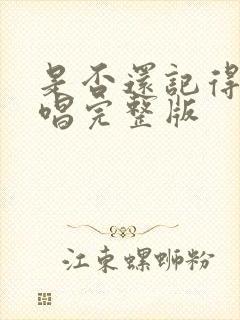 是否還記得
唱完整版
江東螺螄粉